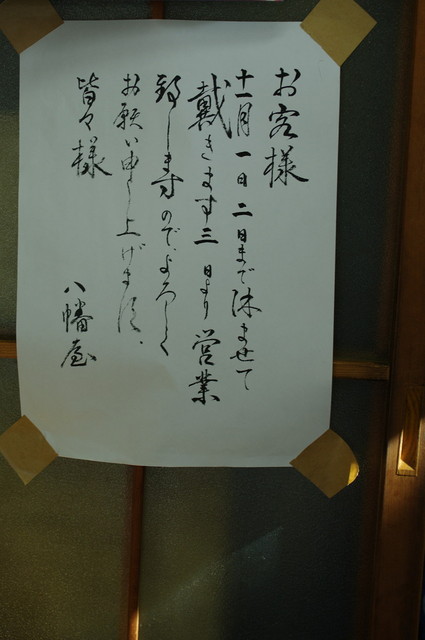 お客様
十一月一日二日まで休ませて
戴きます三日より営業
致しますのでよろしく
お願い申し上げます。
皆々様
八幡屋